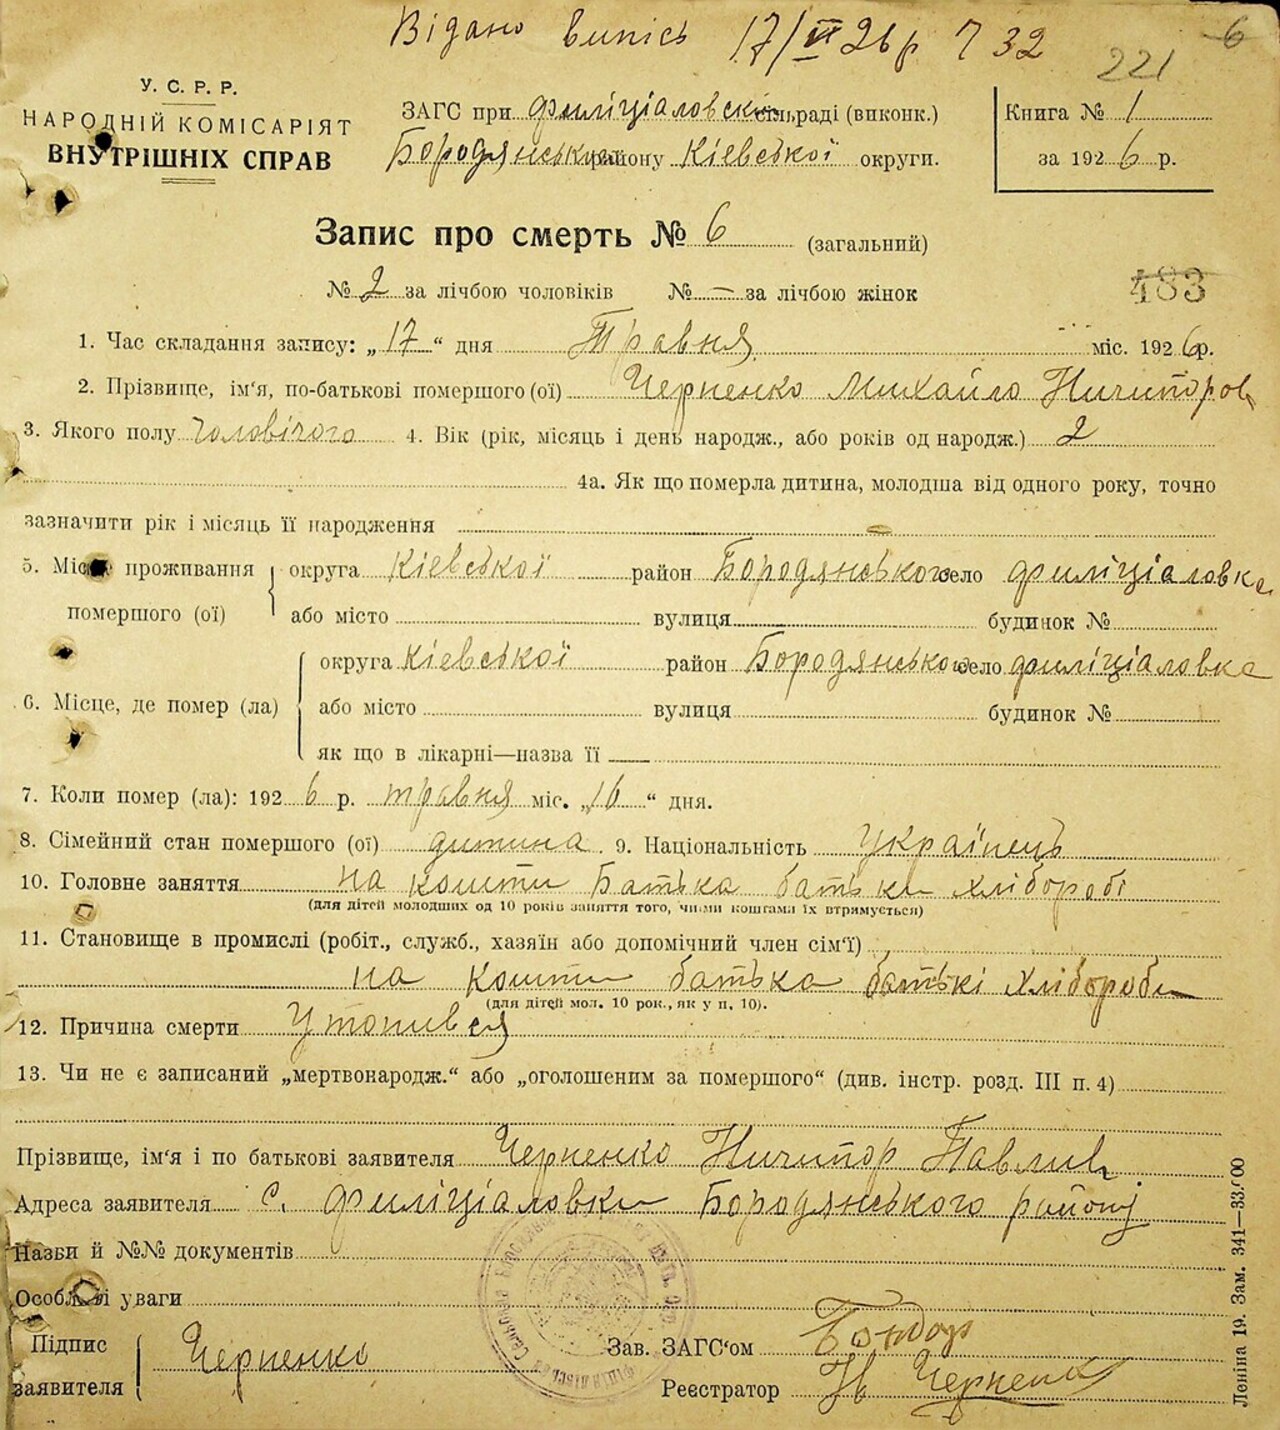 Відано випісь 17/VI 26 р 732
6
221
У. С. Р. Р.
НАРОДНІЙ КОМІСАРІЯТ
ВНУТРІШНІХ СПРАВ
ЗАГС при Филіціаловскій сільраді (виконк.)
Бородянського району Кіевської округи.
Книга № 1
за 1926 р.
Запис про смерть № 6 (загальний)
№ 2 за лічбою чоловіків № — за лічбою жінок
483
1. Час складання запису: „17“ дня Травня міс. 1926 р.
2. Прізвище, ім'я, по-батькові помершого (ої) Черпенко Михайло Ничипоров
3. Якого полу чоловічого 4. Вік (рік, місяць і день народж., або років од народж.) 2
4а. Як що померла дитина, молодша від одного року, точно
зазначити рік і місяць її народження
5. Місце проживання помершого (ої) округа Кіевської район Бородянського село Филіціаловка
або місто вулиця будинок №
6. Місце, де помер (ла) округа Кіевської район Бородянського село Филіціаловка
або місто вулиця будинок №
як що в лікарні—назва її
7. Коли помер (ла): 1926 р. травня міс. „16“ дня.
8. Сімейний стан помершого (ої) дитина 9. Національність Українець
10. Головне заняття на кошти Батька батьки хліборобі
(для дітей молодших од 10 років заняття того, чиїми коштами їх втримується)
11. Становище в промислі (робіт., служб., хазяїн або допомічний член сім'ї)
на кошти батька батькі хлібороби
(для дітей мол. 10 рок., як у п. 10).
12. Причина смерти Утопився
13. Чи не є записаний „мертвонародж.“ або „оголошеним за помершого“ (див. інстр. розд. III п. 4)
Прізвище, ім'я і по батькові заявителя Черпенко Ничипор Павлів
Адреса заявителя с. Филіціаловки Бородянського району
Назви й №№ документів
Особливі уваги
Підпис заявителя Черпенко
Зав. ЗАГС'ом Бондар
Реєстратор Черпенко
Леніна 19. Зам. 341—33.000